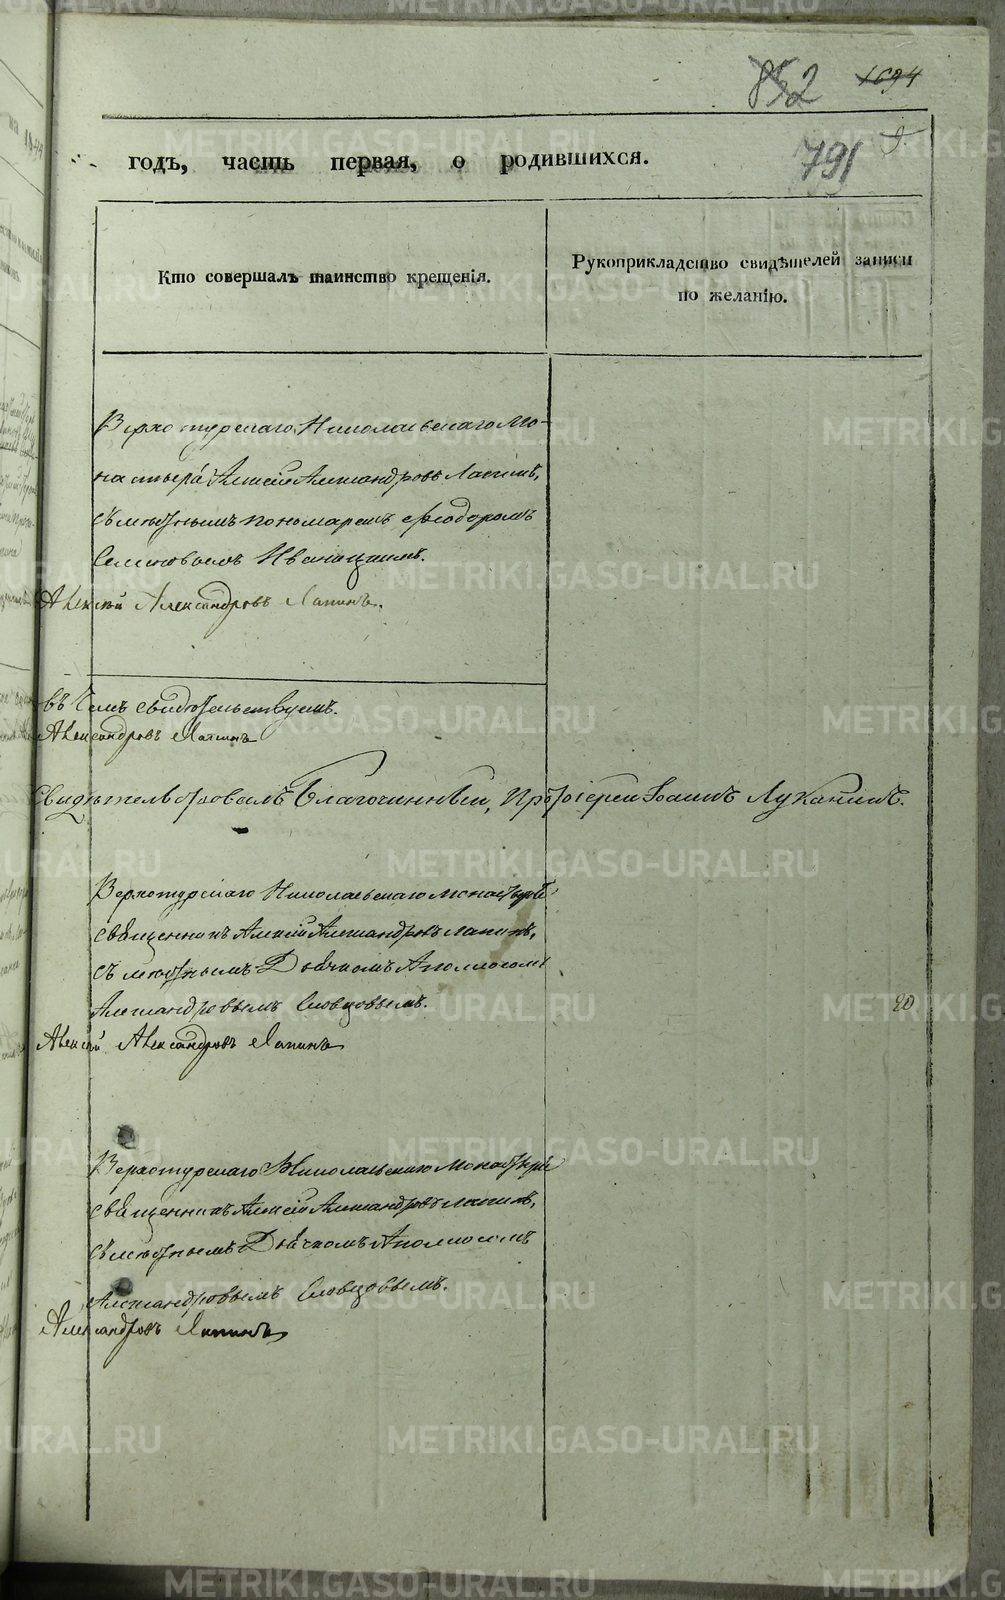 852 1694
годъ, часть первая, о родившихся.
791
Кто совершалъ таинство крещенія.
Рукоприкладство свидѣтелей записи
по желанію.
Верхотурскаго Николаевскаго Мо-
настыря Алексій Александровъ Лапинъ,
съ мѣстнымъ пономаремъ Ѳеодоромъ
Иваницкимъ.
Алексѣй Александровъ Лапинъ.
въ чемъ свидѣтельствуемъ.
Александровъ Лапинъ
Свидѣтельствовалъ Благочинный, Протоіерей Іоаннъ Луканинъ.
Верхотурскаго Николаевскаго монастыря
священникъ Алексій Александровъ Лапинъ,
съ мѣстнымъ Дьячкомъ Аполлосомъ
Александровымъ Словцовымъ.
20
Алексѣй Александровъ Лапинъ
Верхотурскаго Николаевскаго монастыря
священникъ Алексій Александровъ Лапинъ,
съ мѣстнымъ Дьячкомъ Аполлосомъ
Александровымъ Словцовымъ.
Александровъ Лапинъ
METRIKI.GASO-URAL.RU